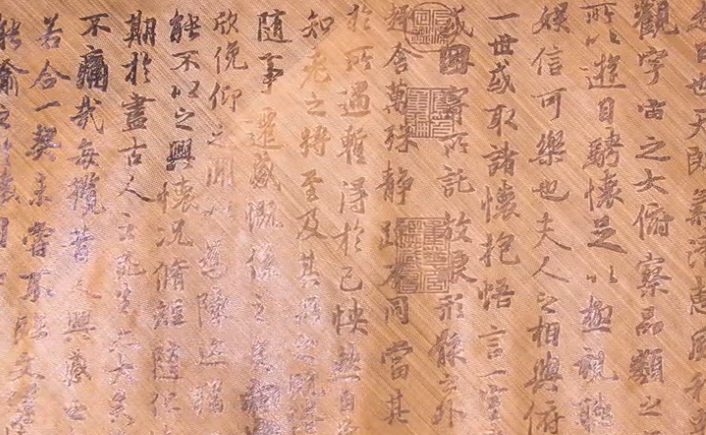 日也天朗氣清惠風和
觀宇宙之大俯察品類之
所以遊目騁懷足以極視聽
娛信可樂也夫人之相與俯
一世或取諸懷抱悟言一室
或因寄所託放浪形骸之外
趣舍萬殊靜躁不同當其
於所遇暫得於己快然自
知老之將至及其所之既
隨事遷感慨係之矣向
欣俛仰之閒以為陳迹猶
能不以之興懷況脩短隨化
期於盡古人云死生亦大矣
不痛哉每攬昔人興感之
若合一契未嘗不臨文嗟
能喻之於懷固